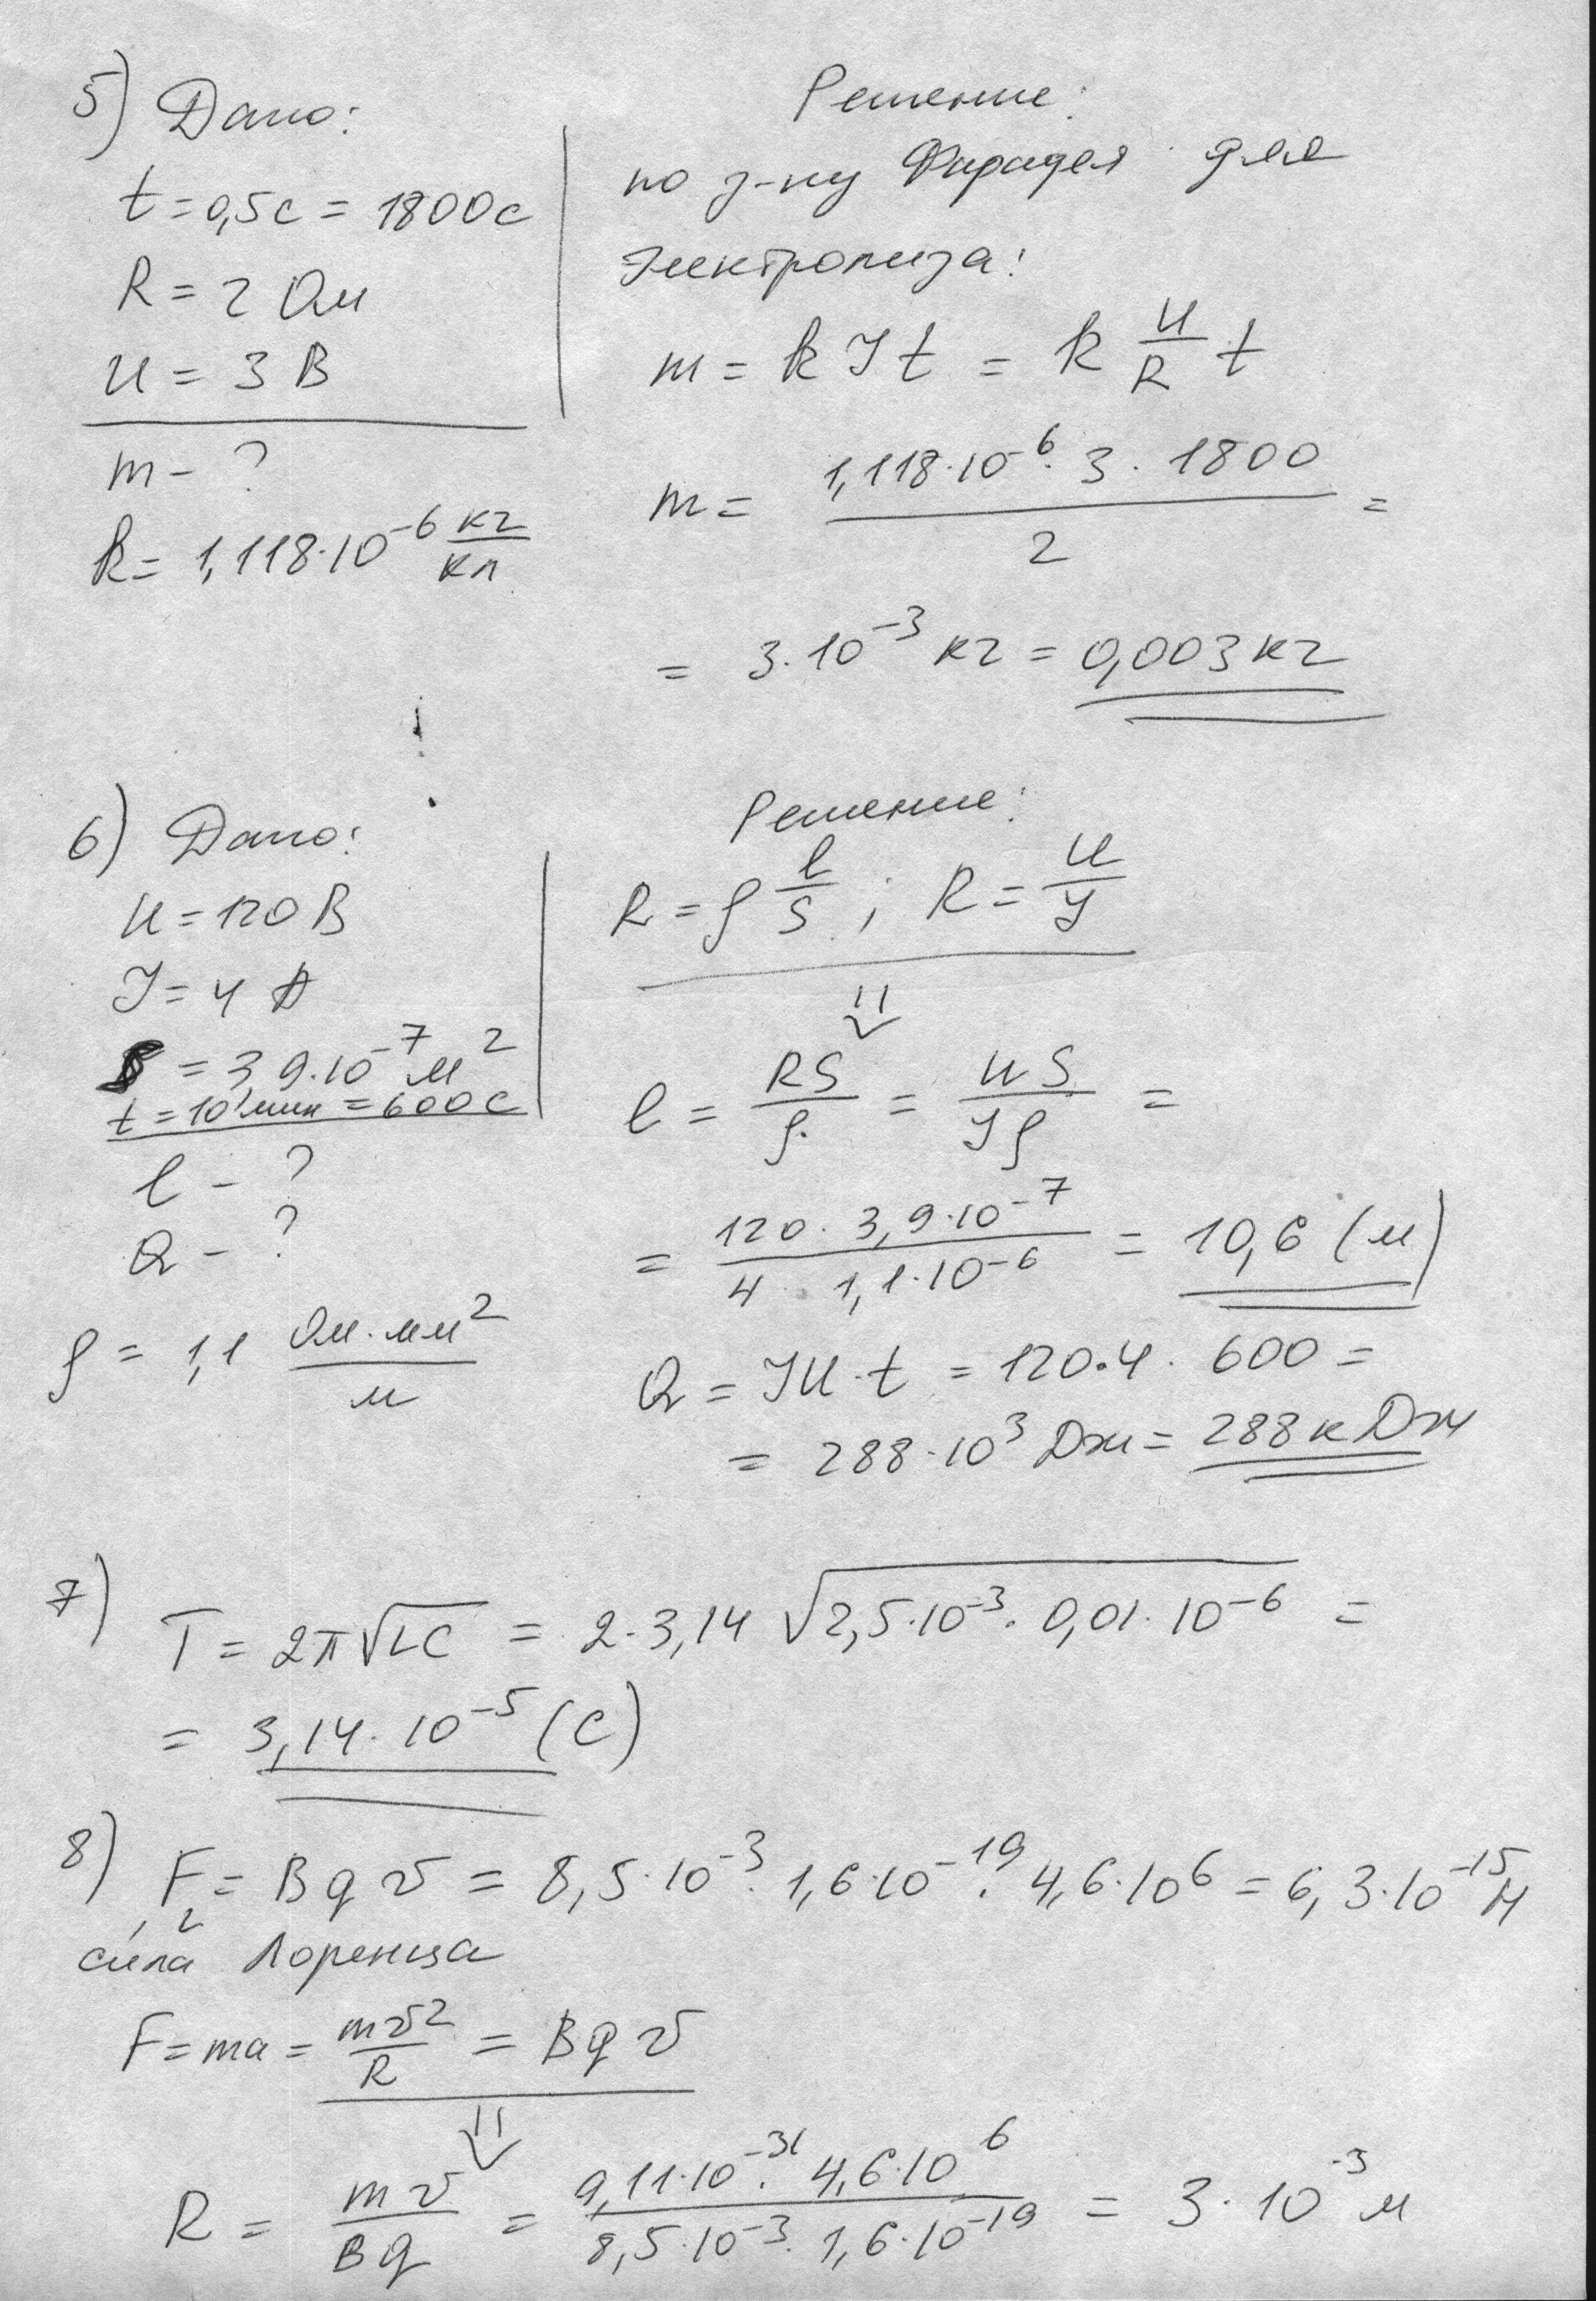 5) Дано:
t = 0,5 с = 1800 с
R = 2 Ом
U = 3 В
m - ?
k = 1,118·10⁻⁶ кг/кл
Решение:
по з-ну Фарадея для
электролиза:
m = k I t = k U/R t
m = 1,118·10⁻⁶ · 3 · 1800 / 2 =
= 3·10⁻³ кг = 0,003 кг
6) Дано:
U = 120 В
I = 4 А
S = 3,9·10⁻⁷ м²
t = 10 мин = 600 с
l - ?
Q - ?
ρ = 1,1 Ом·мм²/м
Решение:
R = ρ l/S ; R = U/I
⇓
l = RS/ρ = US/Iρ =
= 120 · 3,9·10⁻⁷ / 4 · 1,1·10⁻⁶ = 10,6 (м)
Q = IU·t = 120·4 · 600 =
= 288·10³ Дж = 288 кДж
7)
T = 2π√LC = 2·3,14 √2,5·10⁻³ · 0,01·10⁻⁶ =
= 3,14·10⁻⁵ (с)
8) F = Bqv = 8,5·10⁻³ · 1,6·10⁻¹⁹ · 4,6·10⁶ = 6,3·10⁻¹⁵ Н
сила Лоренца
F = ma = mv²/R = Bqv
⇓
R = mv/Bq = 9,11·10⁻³¹ · 4,6·10⁶ / 8,5·10⁻³ · 1,6·10⁻¹⁹ = 3·10⁻³ м